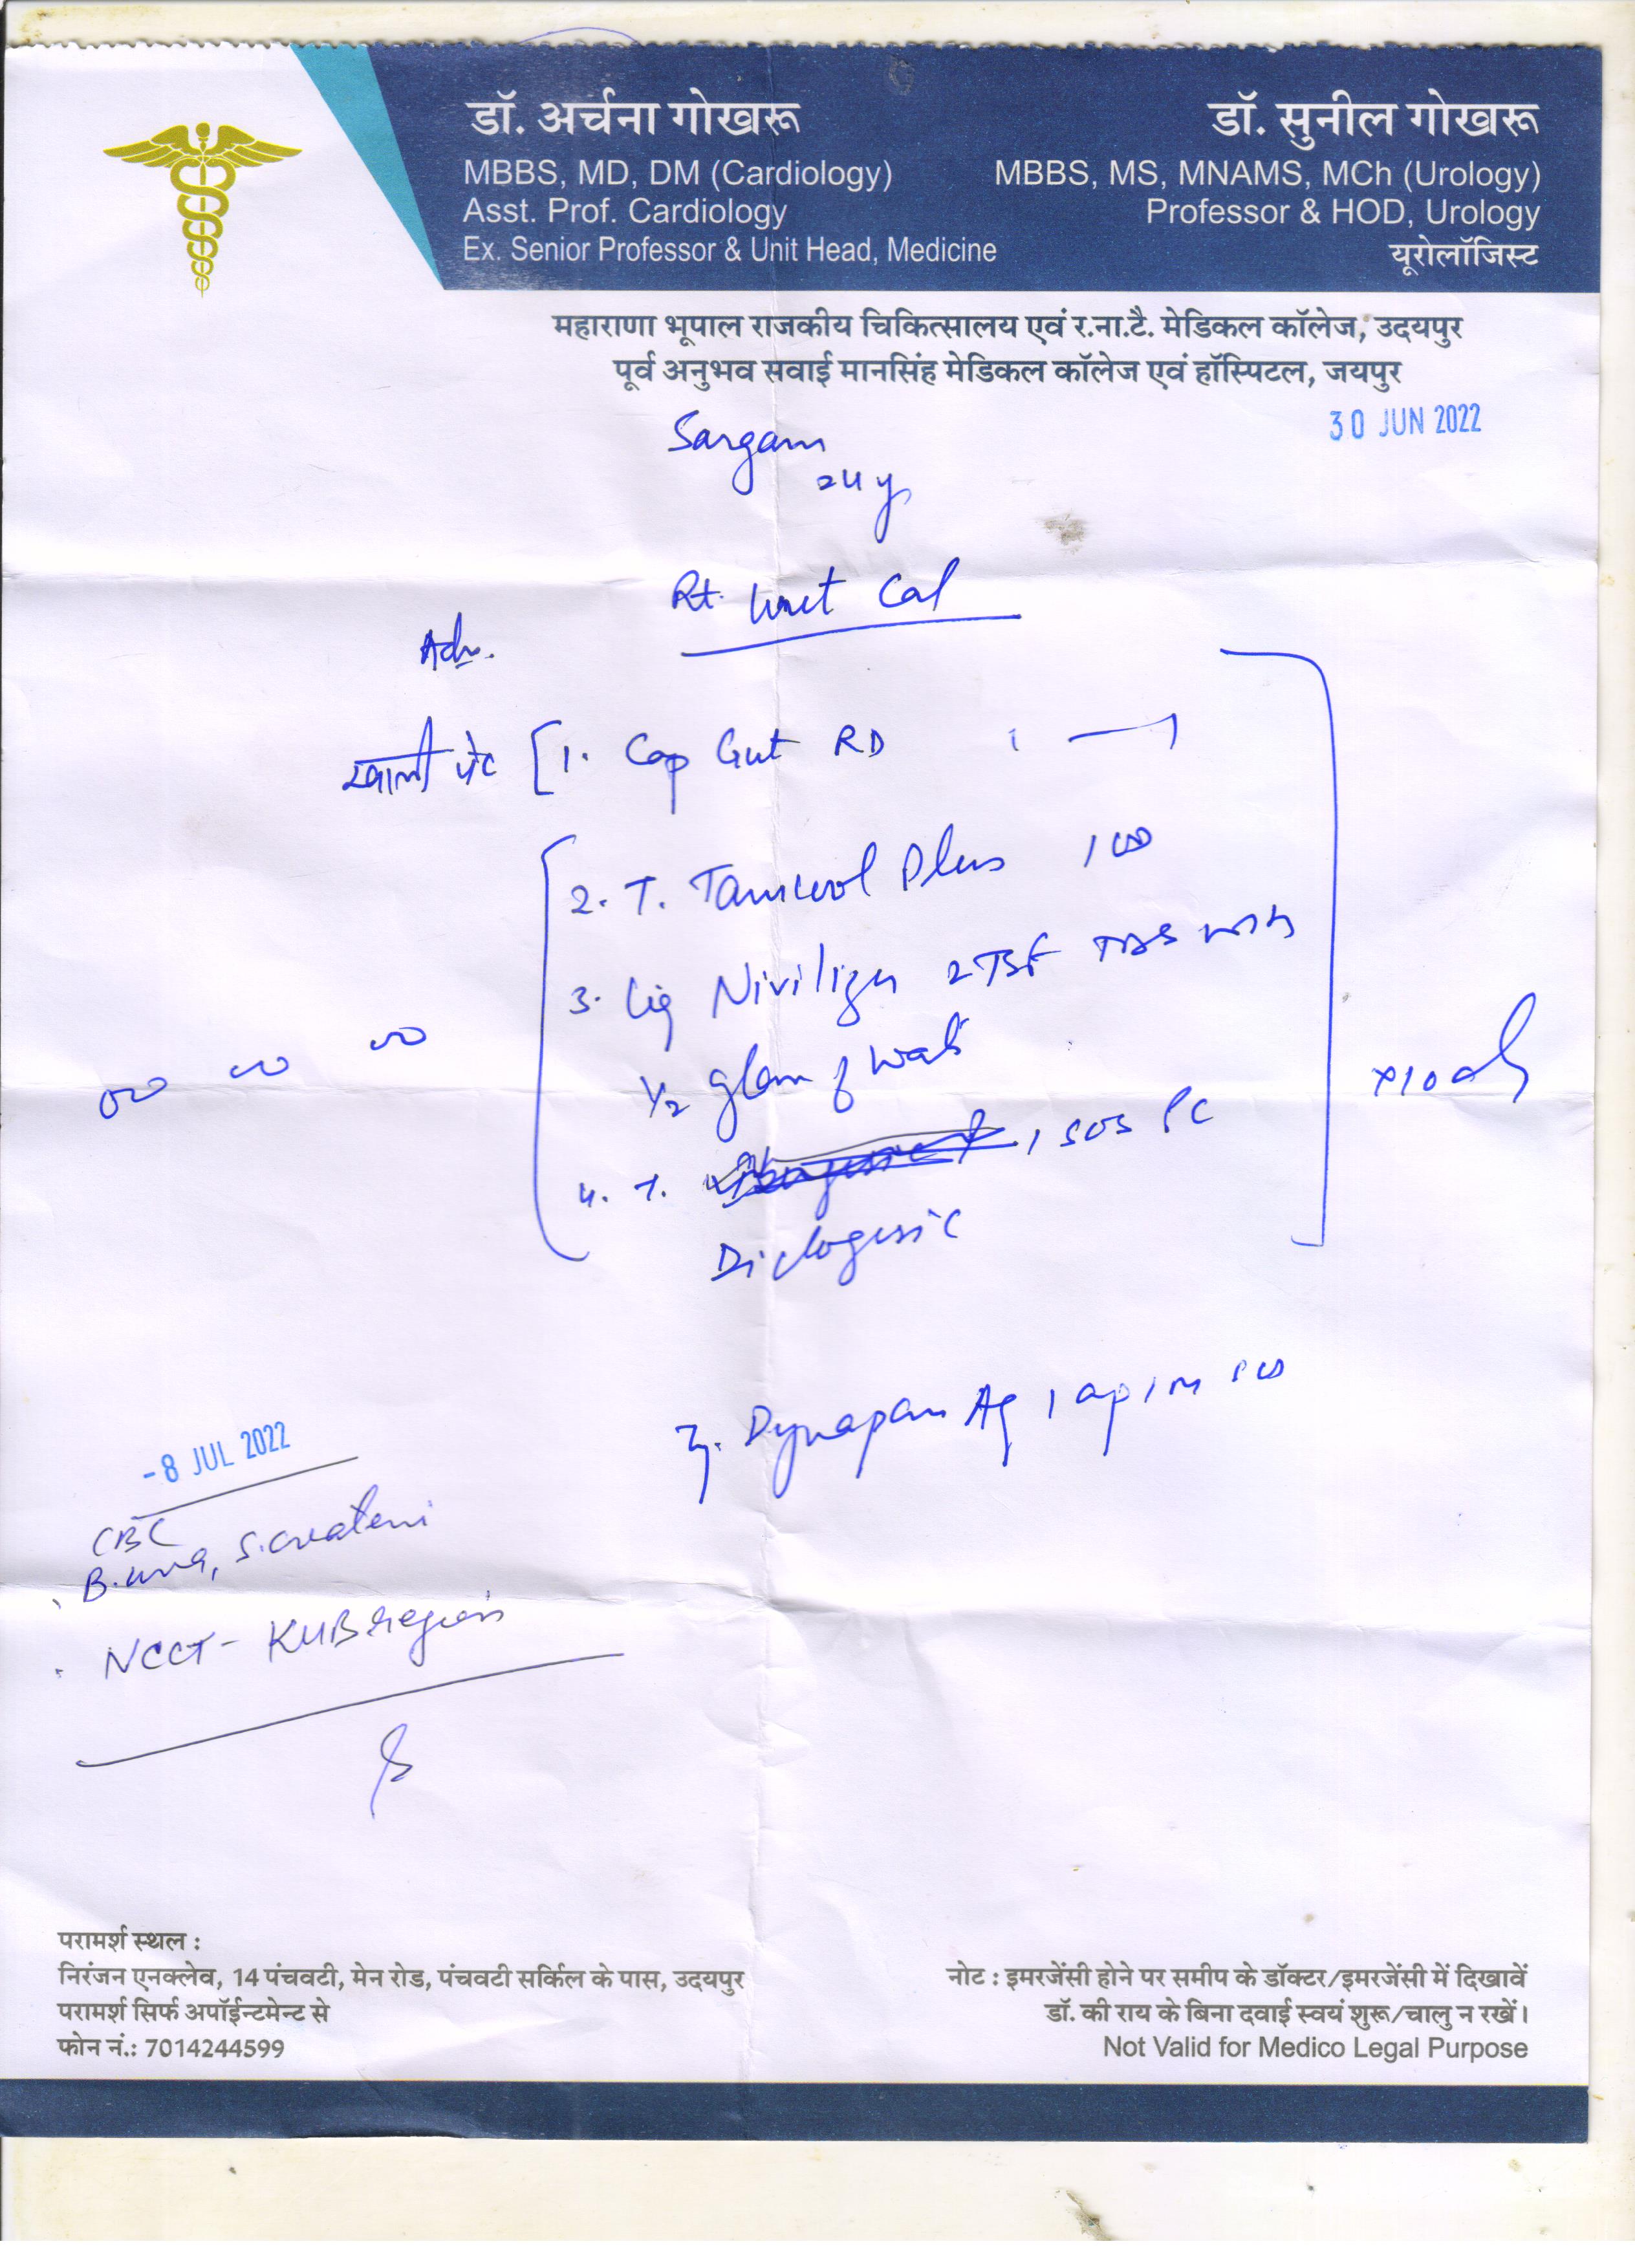 डॉ. अर्चना गोखरू
MBBS, MD, DM (Cardiology)
Asst. Prof. Cardiology
Ex. Senior Professor & Unit Head, Medicine
डॉ. सुनील गोखरू
MBBS, MS, MNAMS, MCh (Urology)
Professor & HOD, Urology
यूरोलॉजिस्ट
महाराणा भूपाल राजकीय चिकित्सालय एवं र.ना.टै. मेडिकल कॉलेज, उदयपुर
पूर्व अनुभव सवाई मानसिंह मेडिकल कॉलेज एवं हॉस्पिटल, जयपुर
30 JUN 2022
Sargam
24 y
Rt. Cal
Adv.
खाली पेट [1. Cap Gut RD
2. T. Plus 1
3. Liq 2 TSF TDS with
1/2 glass of wat
4. T. 1 SOS PC
Diclogesic
x10 d
Dynapar Aq 1 amp IM
-8 JUL 2022
CBC
B. urea, S. creatinine
NCCT - KUB region
परामर्श स्थल :
निरंजन एनक्लेव, 14 पंचवटी, मेन रोड, पंचवटी सर्किल के पास, उदयपुर
परामर्श सिर्फ अपॉईन्टमेन्ट से
फोन नं.: 7014244599
नोट : इमरजेंसी होने पर समीप के डॉक्टर/इमरजेंसी में दिखावें
डॉ. की राय के बिना दवाई स्वयं शुरू/चालु न रखें।
Not Valid for Medico Legal Purpose